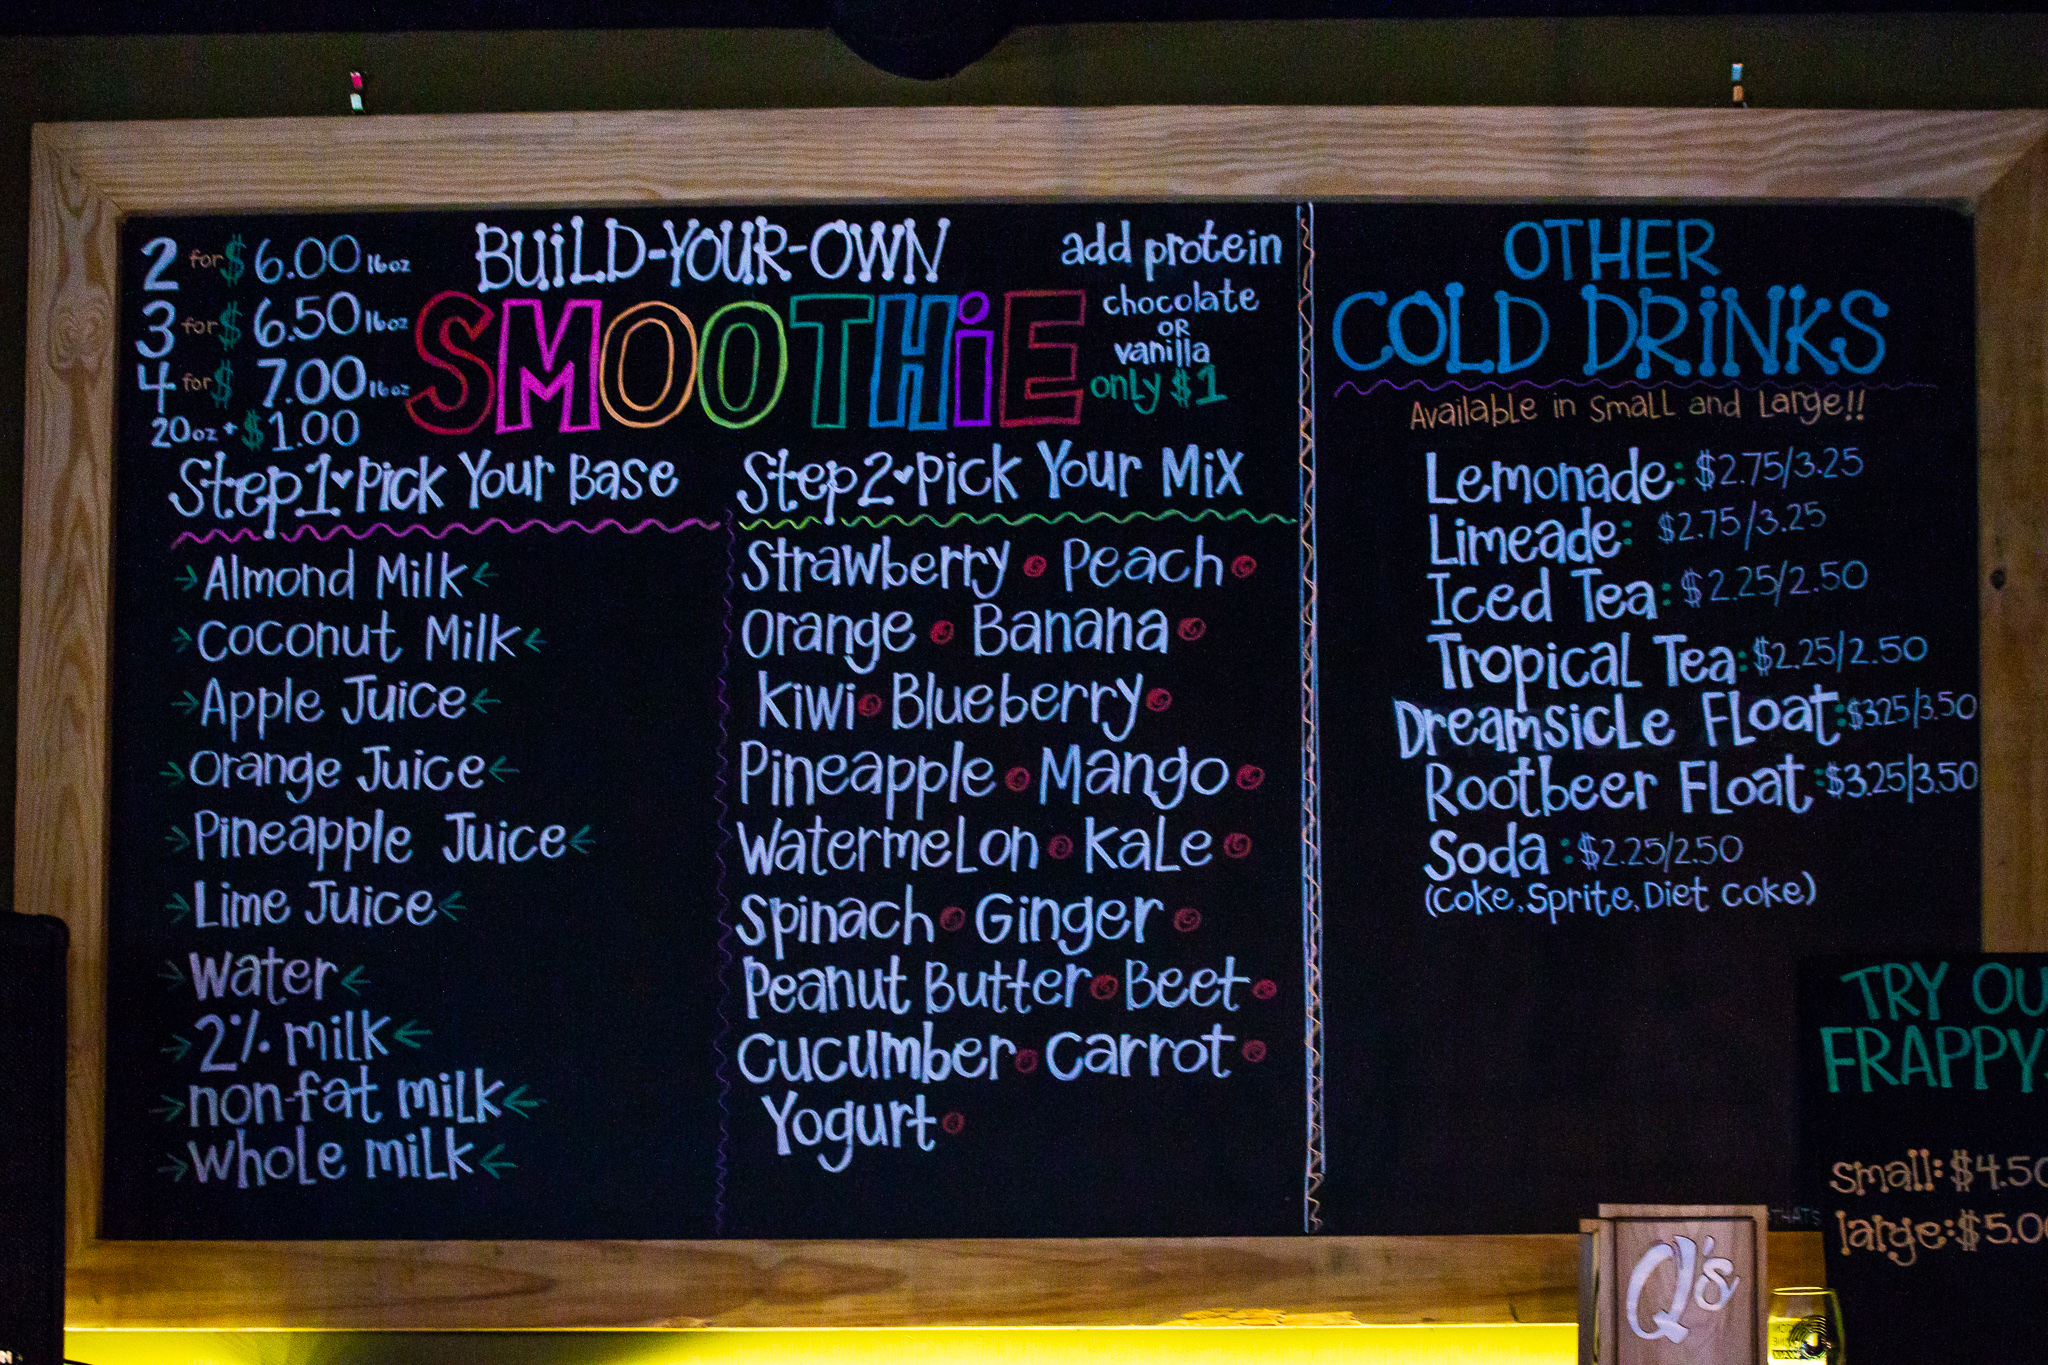 2 for $6.00 16oz
3 for $6.50 16oz
4 for $7.00 16oz
20oz + $1.00
BUiLD-YOUR-OWN
SMOOTHiE
add protein
chocolate
OR
vanilla
only $1
Step 1 Pick Your Base
Almond Milk
Coconut Milk
Apple Juice
Orange Juice
Pineapple Juice
Lime Juice
Water
2% milk
non-fat milk
whole milk
Step 2 Pick Your Mix
Strawberry • Peach •
Orange • Banana •
Kiwi • Blueberry •
Pineapple • Mango •
Watermelon • Kale •
Spinach • Ginger •
Peanut Butter • Beet •
Cucumber • Carrot •
Yogurt •
OTHER
COLD DRiNKS
Available in Small and Large!!
Lemonade: $2.75/3.25
Limeade: $2.75/3.25
Iced Tea: $2.25/2.50
Tropical Tea: $2.25/2.50
Dreamsicle Float: $3.25/3.50
Rootbeer Float: $3.25/3.50
Soda: $2.25/2.50
(Coke, Sprite, Diet Coke)
TRY OU
FRAPPY
small: $4.50
large: $5.00
Q's